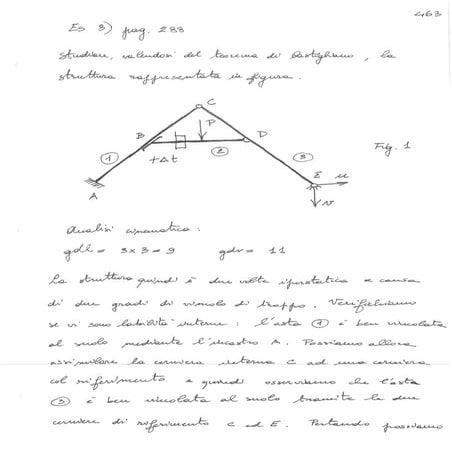 463
Es 3) pag. 288
Studiare, valendosi del teorema di Castigliano, la
struttura rappresentata in figura.
C
P
B
D
1
2
3
+Δt
Fig. 1
E
u
A
v
Analisi cinematica:
gdl = 3x3 = 9 gdv = 11
La struttura quindi è due volte iperstatica a causa
di due gradi di vincolo di troppo. Verifichiamo
se vi sono labilità interne: l'asta 1 è ben vincolata
al suolo mediante l'incastro A. Possiamo allora
assimilare la cerniera interna C ad una cerniera
col riferimento e quindi osserviamo che l'asta
3 è ben vincolata al suolo tramite le due
cerniere di riferimento C ed E. Pertanto possiamo